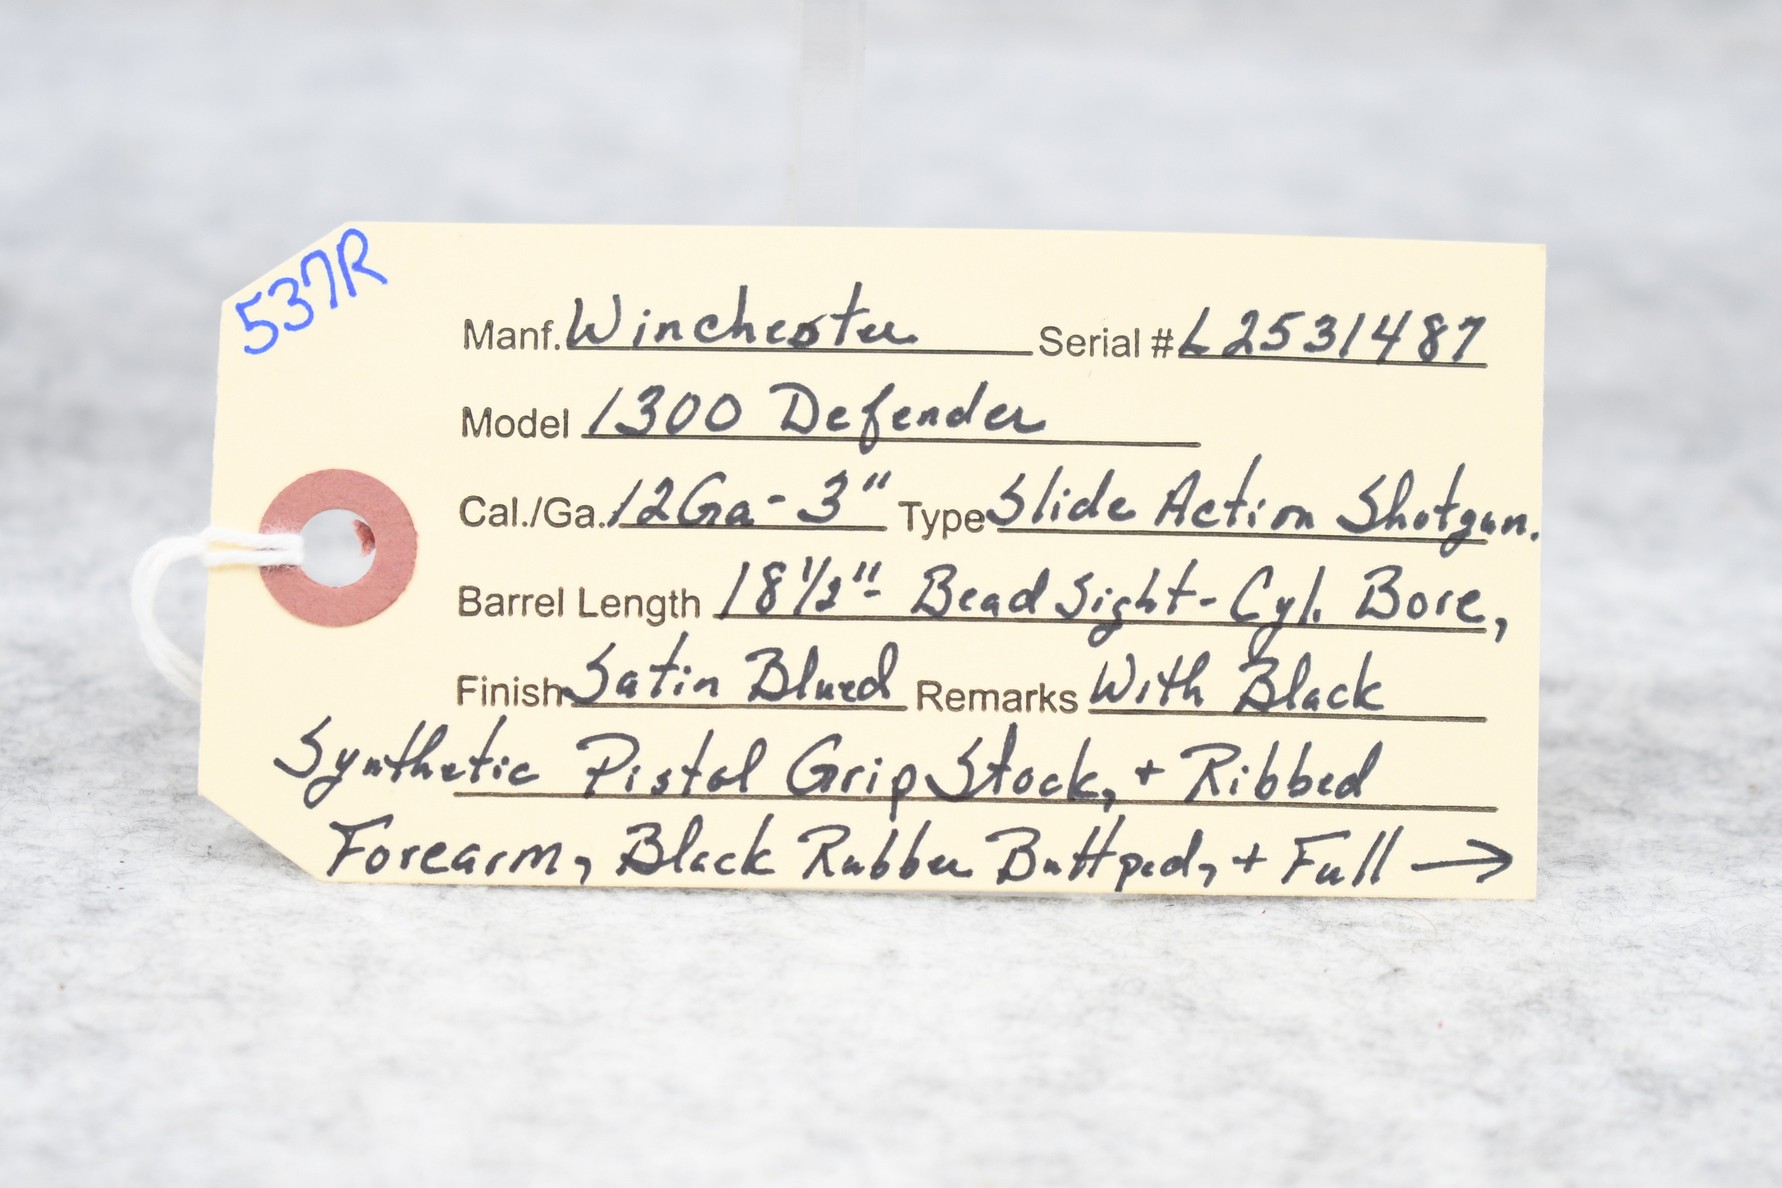 537R
Manf. Winchester Serial # L2531487
Model 1300 Defender
Cal./Ga. 12Ga - 3" Type Slide Action Shotgun.
Barrel Length 18 1/2" - Bead Sight - Cyl. Bore,
Finish Satin Blued Remarks With Black
Synthetic Pistol Grip Stock, + Ribbed
Forearm, Black Rubber Buttpad, + Full →